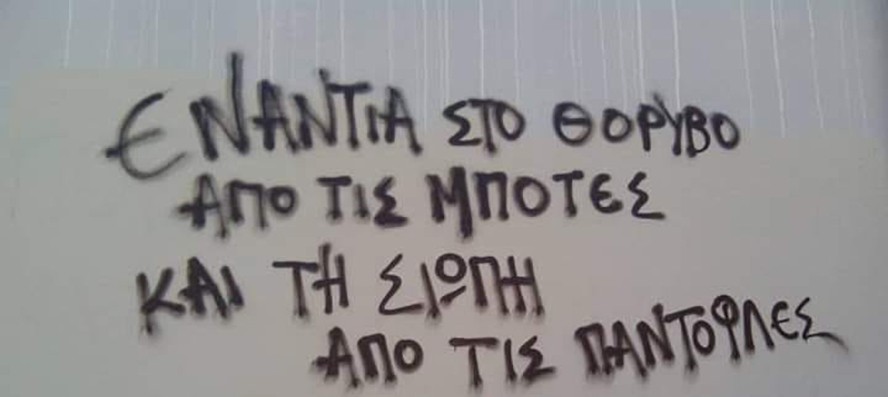 ΕΝΑΝΤΙΑ ΣΤΟ ΘΟΡΥΒΟ
ΑΠΟ ΤΙΣ ΜΠΟΤΕΣ
ΚΑΙ ΤΗ ΣΙΩΠΗ
ΑΠΟ ΤΙΣ ΠΑΝΤΟΦΛΕΣ